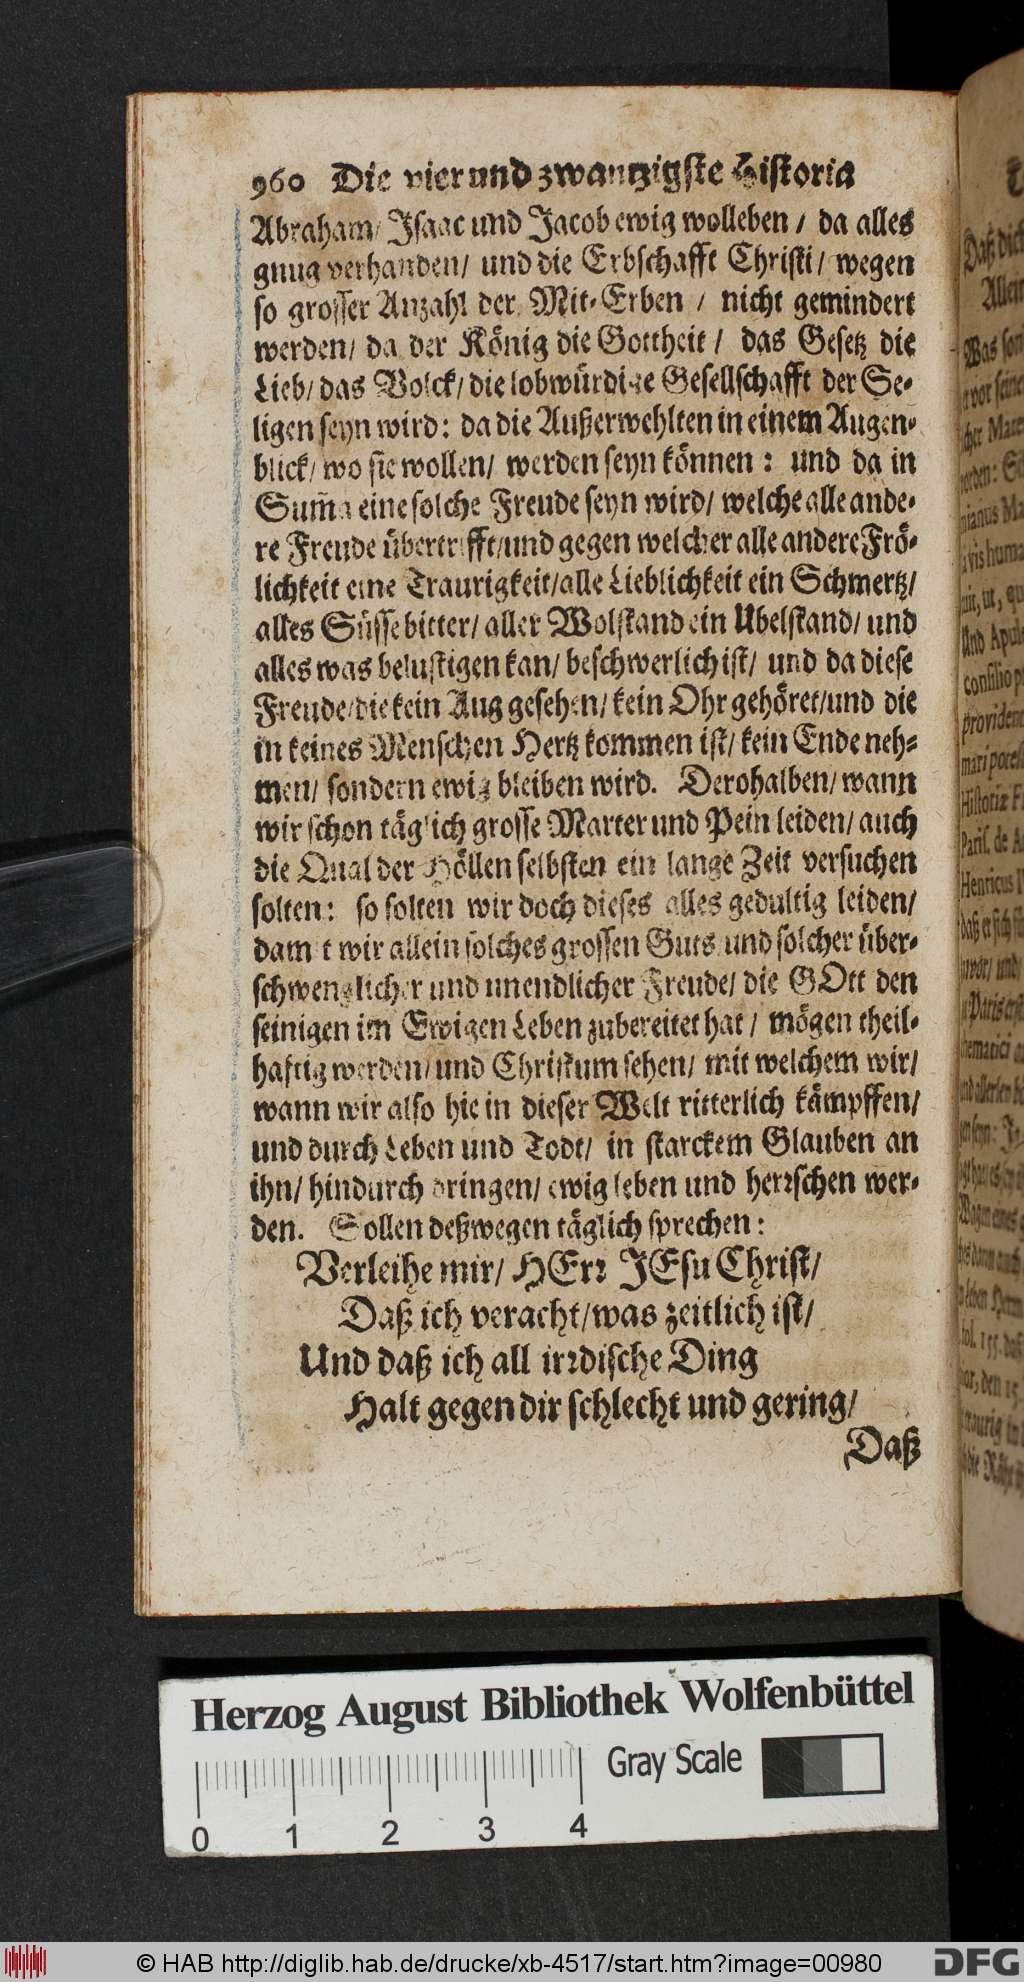 960 Die vier und zwantzigste Historia
Abraham/ Isaac und Jacob ewig wolleben / da alles
gnug verhanden/ und die Erbschafft Christi/ wegen
so grosser Anzahl der Mit-Erben / nicht gemindert
werden/ da der König die Gottheit / das Gesetz die
Lieb/ das Volck/ die lobwürdige Gesellschafft der Se-
ligen seyn wird: da die Außerwehlten in einem Augen-
blick/ wo sie wollen/ werden seyn können: und da in
Sum̃a eine solche Freude seyn wird/ welche alle ande-
re Freude übertrifft/und gegen welcher alle andere Frö-
lichkeit eine Traurigkeit/alle Lieblichkeit ein Schmertz/
alles Süsse bitter/ aller Wolstand ein Ubelstand/ und
alles was belustigen kan/ beschwerlich ist/ und da diese
Freude/die kein Aug gesehen/ kein Ohr gehöret/und die
in keines Menschen Hertz kommen ist/ kein Ende neh-
men/ sondern ewig bleiben wird. Derohalben/ wann
wir schon täglich grosse Marter und Pein leiden/ auch
die Qual der Höllen selbsten ein lange Zeit versuchen
solten: so solten wir doch dieses alles gedultig leiden/
damit wir allein solches grossen Guts und solcher über-
schwenglicher und unendlicher Freude/ die GOtt den
seinigen im Ewigen Leben zubereitet hat / mögen theil-
haftig werden/ und Christum sehen/ mit welchem wir/
wann wir also hie in dieser Welt ritterlich kämpffen/
und durch Leben und Todt/ in starckem Glauben an
ihn/ hindurch dringen/ ewig leben und herrschen wer-
den. Sollen deßwegen täglich sprechen:
Verleihe mir/ HErr JEsu Christ/
Daß ich veracht/was zeitlich ist/
Und daß ich all irrdische Ding
Halt gegen dir schlecht und gering/
Daß
Daß dich
Allein
Was son
vor seine
cher Mate
orden: S
nianus Ma
vis huma
Und Apul
consilio p
providen
mari potes
Historiæ F
Paris. de A
Henricus
daß er sich
zuvor/ und
Herzog August Bibliothek Wolfenbüttel
Gray Scale
0 1 2 3 4
© HAB http://diglib.hab.de/drucke/xb-4517/start.htm?image=00980
DFG